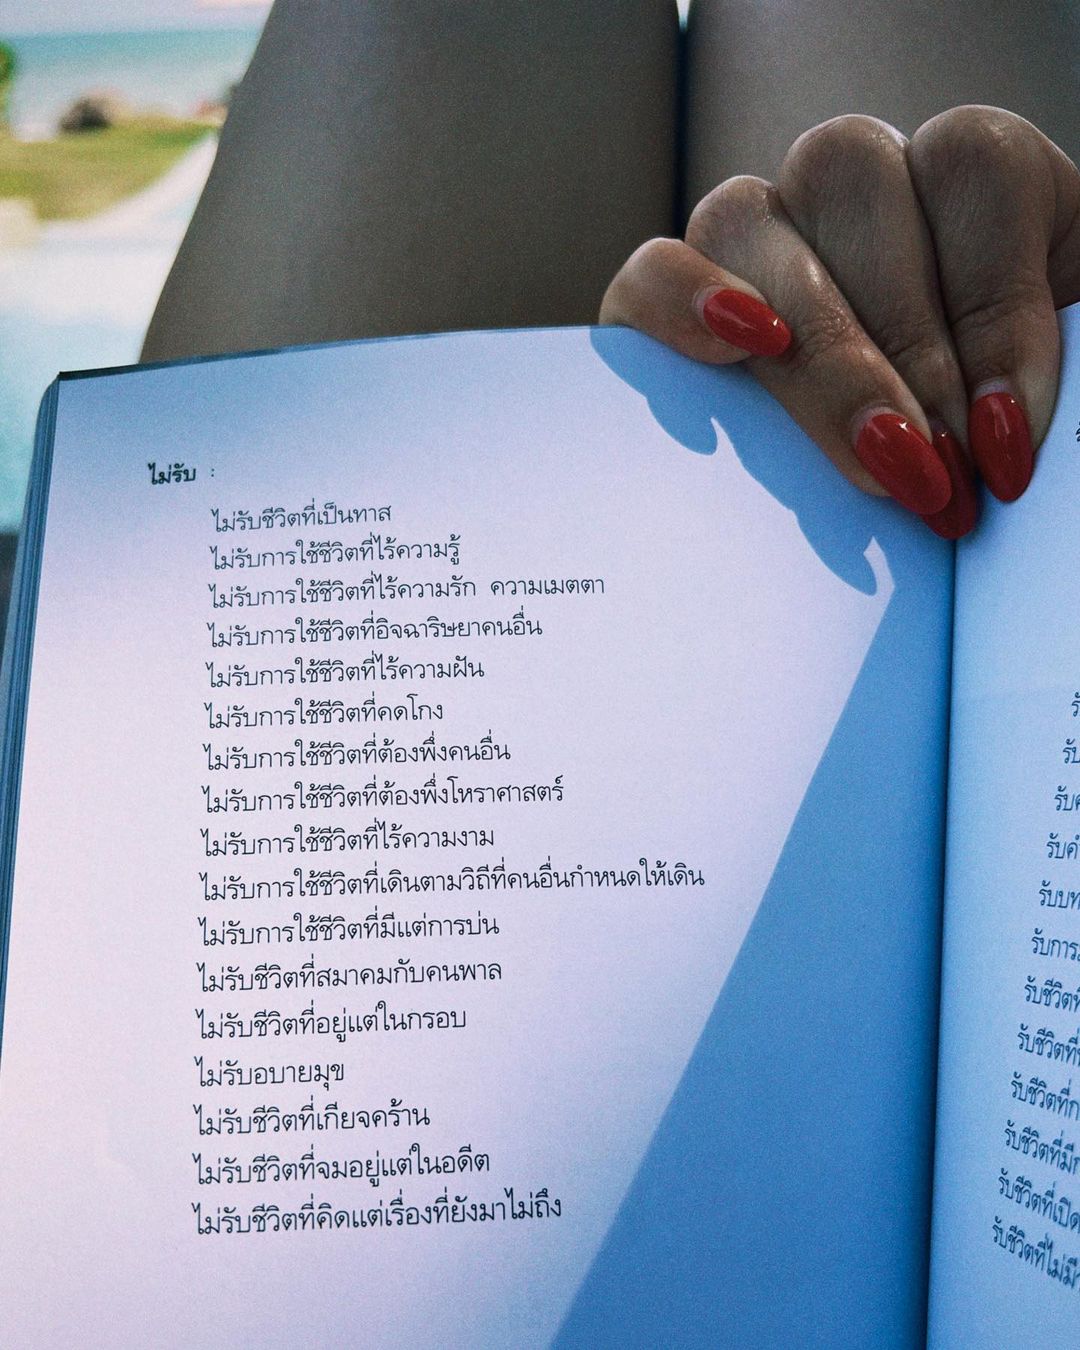 ไม่รับ :
ไม่รับชีวิตที่เป็นทาส
ไม่รับการใช้ชีวิตที่ไร้ความรู้
ไม่รับการใช้ชีวิตที่ไร้ความรัก ความเมตตา
ไม่รับการใช้ชีวิตที่อิจฉาริษยาคนอื่น
ไม่รับการใช้ชีวิตที่ไร้ความฝัน
ไม่รับการใช้ชีวิตที่คดโกง
ไม่รับการใช้ชีวิตที่ต้องพึ่งคนอื่น
ไม่รับการใช้ชีวิตที่ต้องพึ่งโหราศาสตร์
ไม่รับการใช้ชีวิตที่ไร้ความงาม
ไม่รับการใช้ชีวิตที่เดินตามวิถีที่คนอื่นกำหนดให้เดิน
ไม่รับการใช้ชีวิตที่มีแต่การบ่น
ไม่รับชีวิตที่สมาคมกับคนพาล
ไม่รับชีวิตที่อยู่แต่ในกรอบ
ไม่รับอบายมุข
ไม่รับชีวิตที่เกียจคร้าน
ไม่รับชีวิตที่จมอยู่แต่ในอดีต
ไม่รับชีวิตที่คิดแต่เรื่องที่ยังมาไม่ถึง
รับ
รับ
รับการ
รับชีวิตที่
รับชีวิตที่
รับชีวิตที่
รับชีวิตที่มี
รับชีวิตที่เปิด
รับชีวิตที่ไม่มี